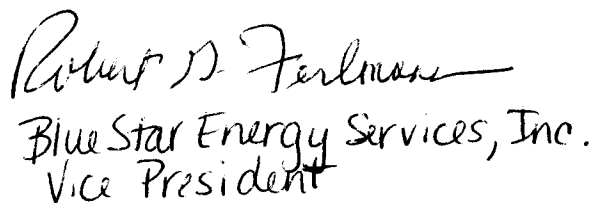 Robert G. Ferlmann
BlueStar Energy Services, Inc.
Vice President